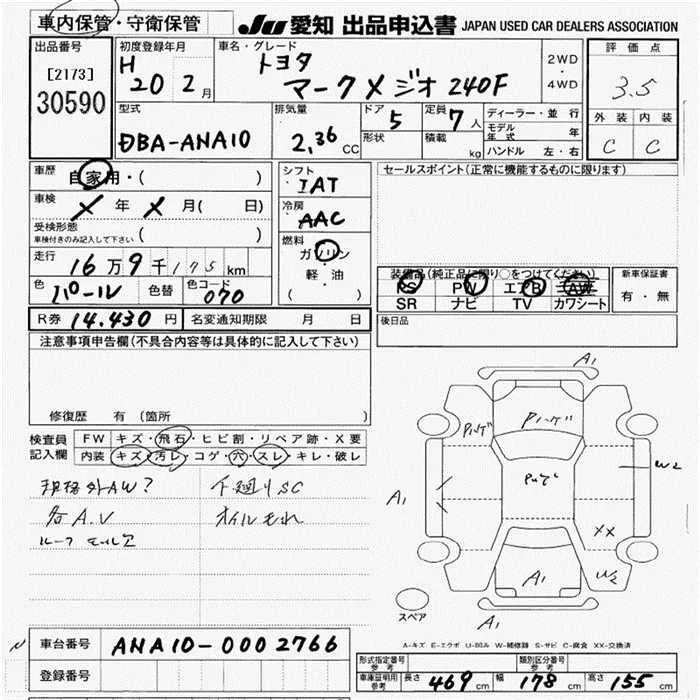 車内保管・守衛保管
JU 愛知 出品申込書 JAPAN USED CAR DEALERS ASSOCIATION
出品番号
[2173]
30590
初度登録年月
H 20 2月
車名・グレード
トヨタ
マークXジオ 240F
2WD
・
4WD
評価点
3.5
外装 内装
C C
型式
DBA-ANA10
排気量
2,36 CC
ドア 5
形状
定員 7人
積載 kg
ディーラー・並行
モデル年式 年
ハンドル 左・右
車歴
自家用・( )
車検
X年 X月( 日)
受検形態
車検付きのみ記入して下さい ( )
走行
16万9千175km
色
パール
色替
色コード
070
シフト
IAT
冷房
AAC
燃料
ガソリン
軽・油
( )
セールスポイント(正常に機能するものに限ります)
装備品(純正品に限り○をつけてください)
PS PW エアB AW
SR ナビ TV カワシート
新車保証書
有・無
R券 14.430円
名変通知期限 月 日
後日品
注意事項申告欄(不具合内容等は具体的に記入して下さい)
修復歴 有(箇所 )
検査員
記入欄
FW キズ・飛石・ヒビ割・リペア跡・X要
内装 キズ・汚レ・コゲ・穴・スレ・キレ・破レ
規格外AW?
各A.V
ルーフモール
下廻りSC
オイルもれ
A1
A1
W2
XX
W2
A1
A1
スペア
A-キズ E-エクボ U-凹み W-補修跡 S-サビ C-腐食 XX-交換済
車台番号
ANA10-0002766
登録番号
形式指定番号
参考
類別区分番号
参考
車庫証明用
参考
長さ 469cm
幅 178cm
高さ 155cm